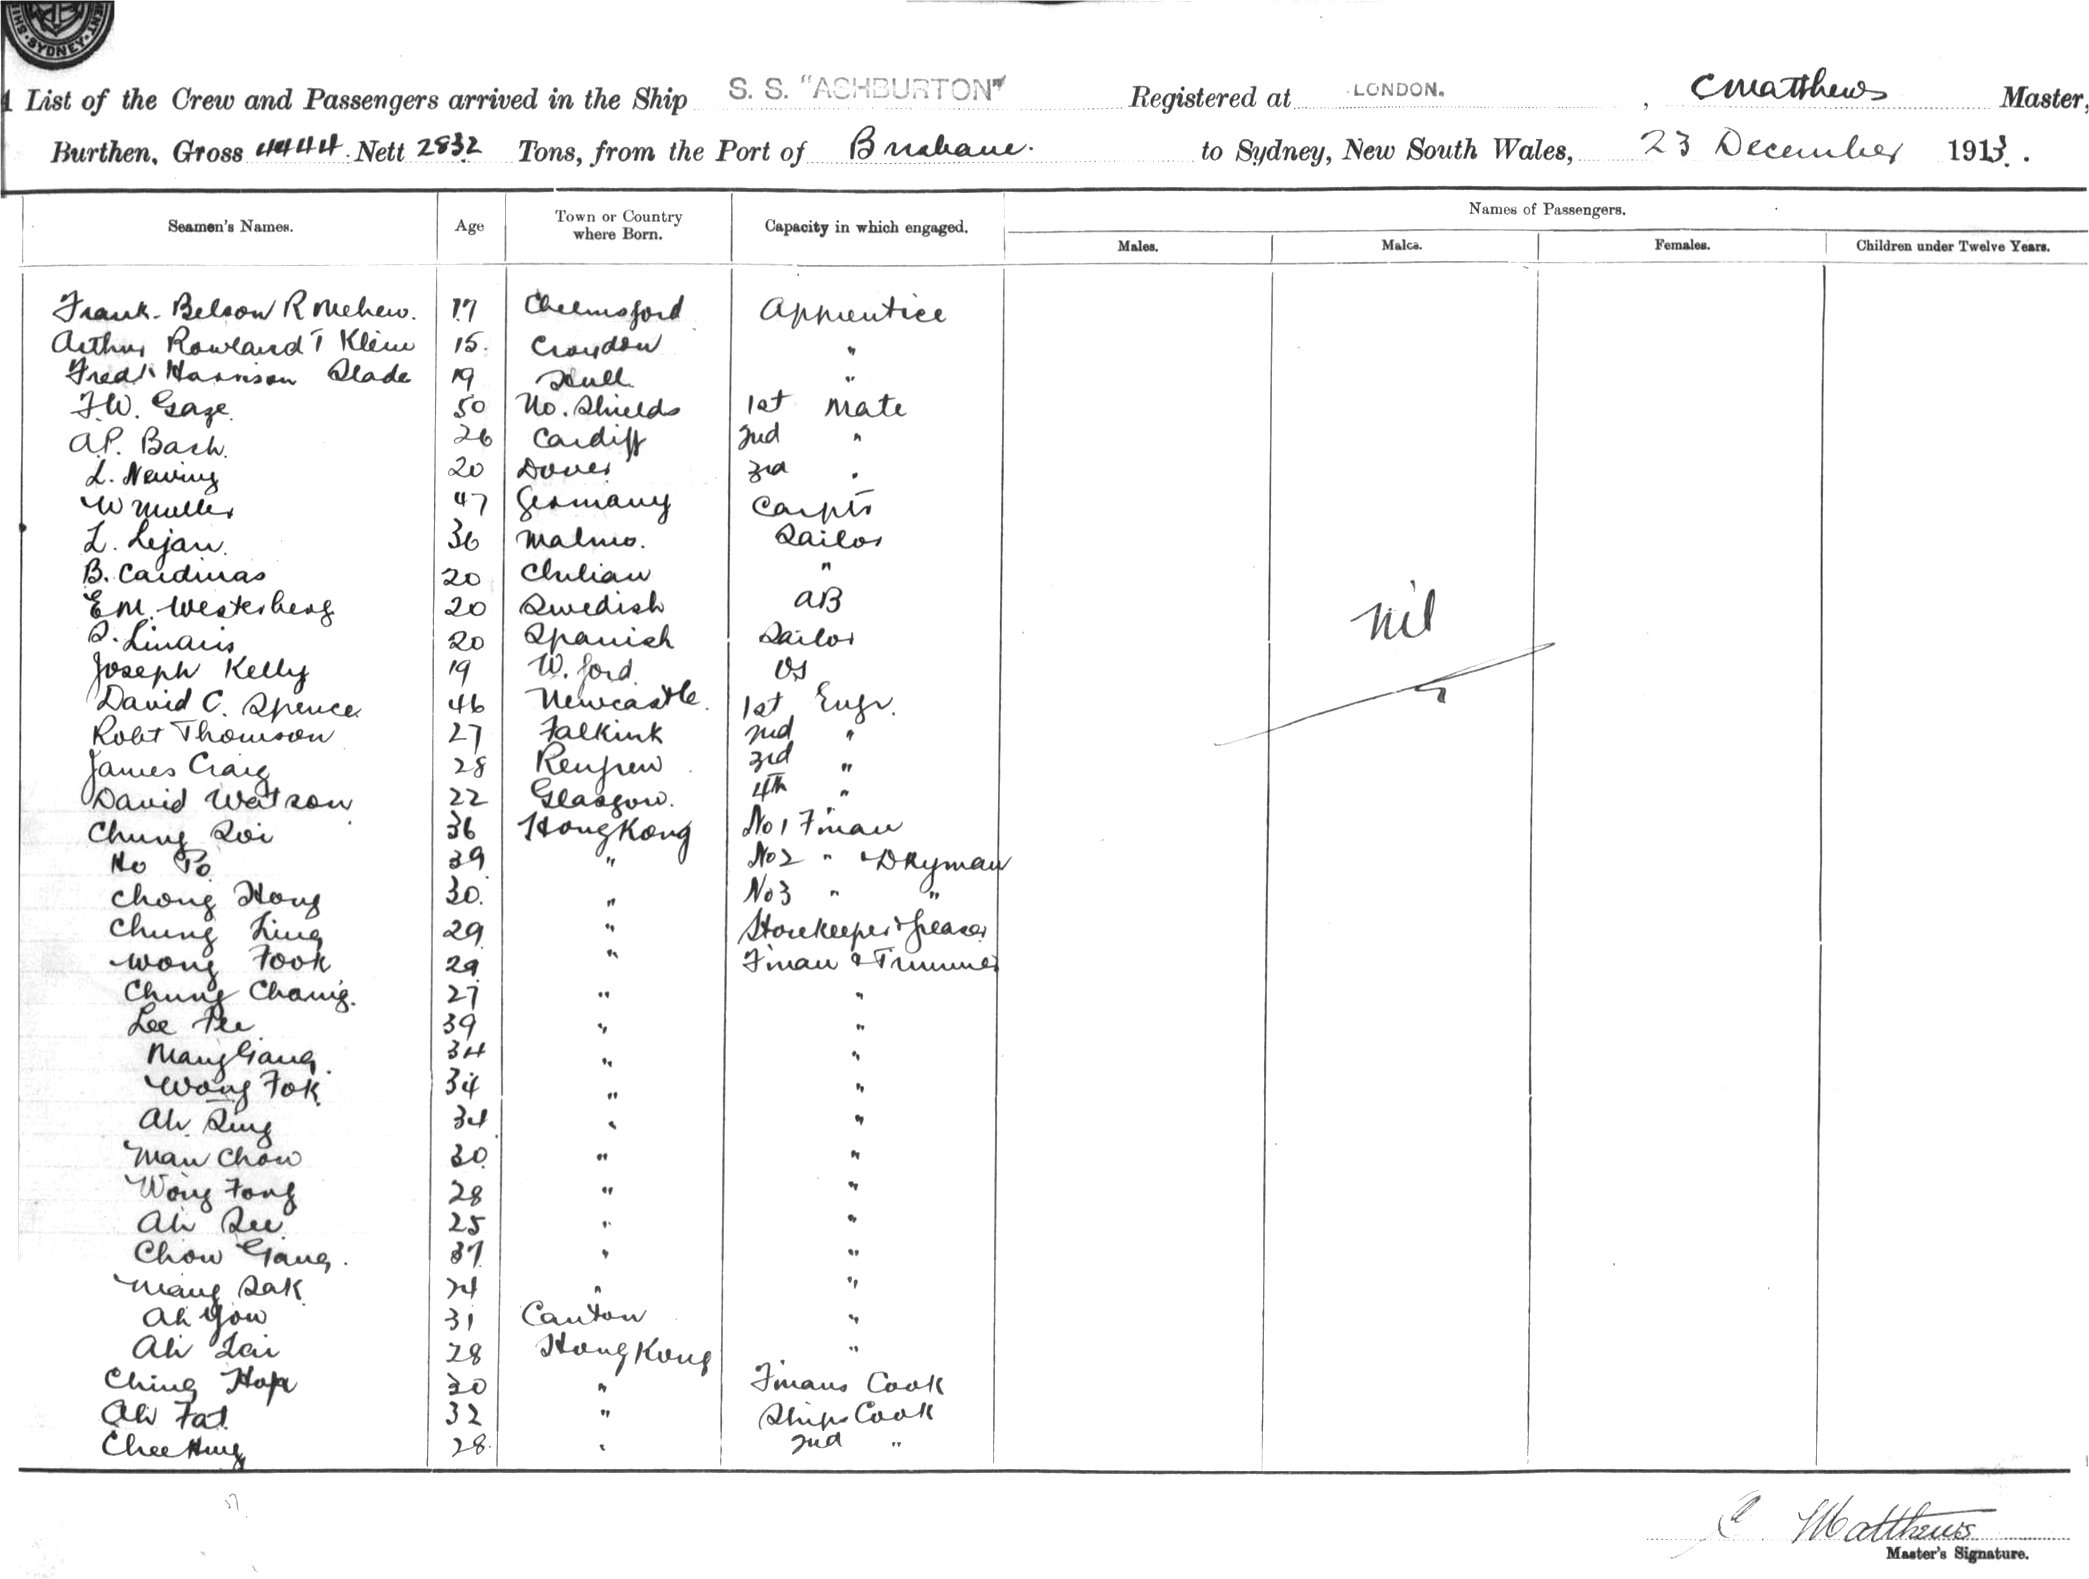 SYDNEY
A List of the Crew and Passengers arrived in the Ship S. S. "ASHBURTON" Registered at LONDON. , C Matthews Master,
Burthen, Gross 4444 Nett 2832 Tons, from the Port of Brisbane. to Sydney, New South Wales, 23 December 1913.
Names of Passengers.
Seamen's Names. Age Town or Country where Born. Capacity in which engaged. Males. Males. Females. Children under Twelve Years.
Frank Belson R Mehew. 17 Chelmsford Apprentice
Arthur Rowland T Klein 15. Croydon "
Fredk Harrison Slade 19 Hull "
F.W. Gaze. 50 No. Shields 1st Mate
A.P. Bach. 26 Cardiff 2nd "
L. Newing 20 Dover 3rd "
W Muller 47 Germany Carptr
L. Lejan. 36 Malmo. Sailor
B. Cardinas 20 Chilian "
E M. Westerberg 20 Swedish AB
S. Linaris 20 Spanish Sailor
nil
Joseph Kelly 19 W. ford OS
David C. Spence 46 Newcastle. 1st Engr.
Robt Thomson 27 Falkirk 2nd "
James Craig 28 Renfrew 3rd "
David Watson 22 Glasgow. 4th "
Chung Soi 36 Hong Kong No 1 Fman
Ho Po 39 " No 2 " & Dkyman
Chong Hong 30. " No 3 " "
Chung Ling 29 " Storekeeper & Greaser
Wong Fook 29 " Fman & Trimmer
Chung Chang. 27 " "
Lee Fee 39 " "
Mang Gang. 34 " "
Wong Fok 34 " "
Ah Sing 34 " "
Man Chow 30 " "
Wong Fong 28 " "
Ah See 25 " "
Chow Gang. 37 " "
Mang Sak 24 " "
Ah You 31 Canton "
Ah Lai 28 Hong Kong "
Ching Hop 30 " Fmans Cook
Ah Fat 32 " Ships Cook
Chee Hing 28. " 2nd "
C Matthews
Master's Signature.